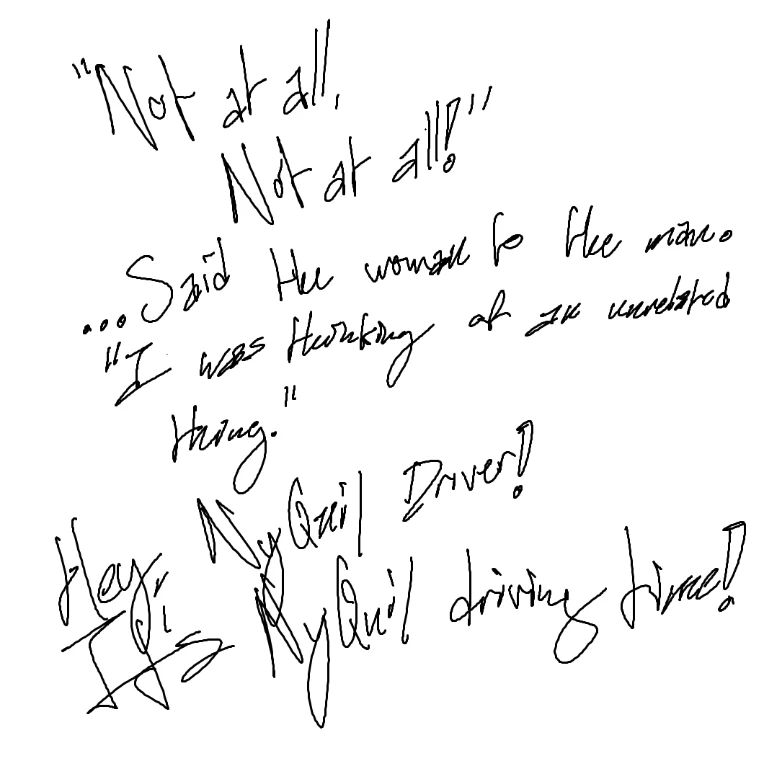 "Not at all,
Not at all!"
...Said the woman to the man.
"I was thinking of an unrelated
thing."
Hey, NyQuil Driver!
It's NyQuil driving time!